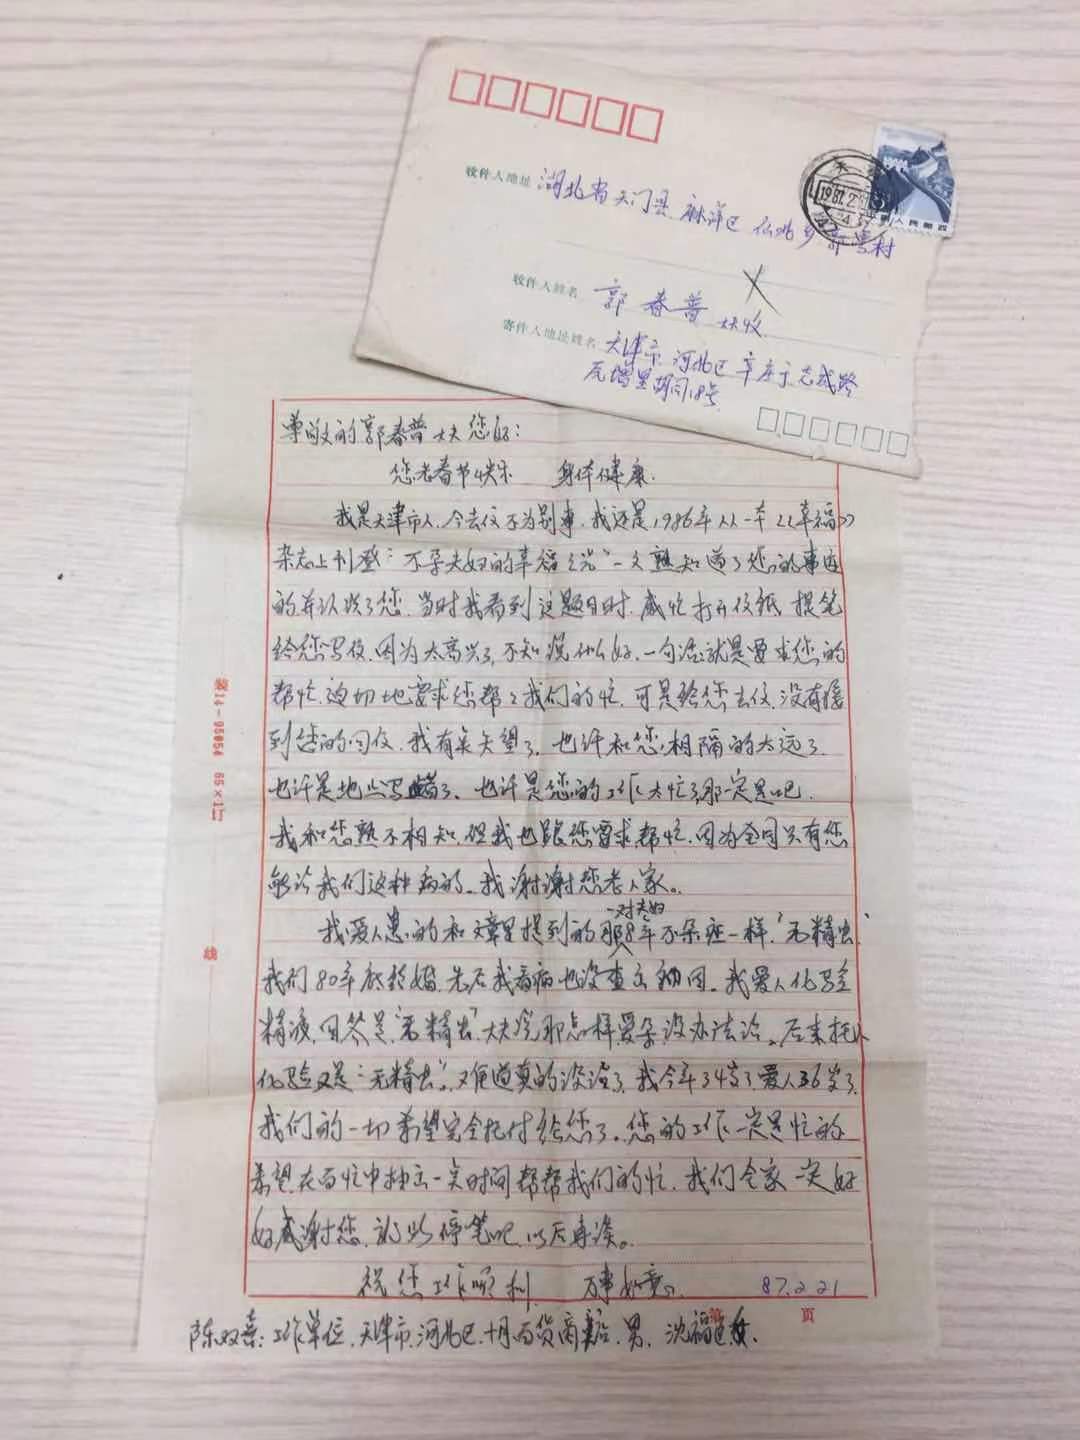 收件人地址 湖北省天门县麻洋区仙北乡郭湾村
收件人姓名 郭春普 大夫收
寄件人地址姓名 天津市河北区辛庄子志成路
瓦墙里胡同18号
1987.2
中国人民邮政
尊敬的郭春普大夫您好:
您老春节快乐 身体健康.
我是天津市人.今去信不为别事.我还是1986年从一本《幸福》
杂志上刊登:不孕夫妇的幸福之光"一文熟知道了您的事迹
的并认识了您.当时我看到这题目时.感忙打开信纸 提笔
给您写信.因为太高兴了,不知说什么好.一句话就是要求您的
帮忙.迫切地要求您帮帮我们的忙.可是给您去信.没有接
到您的回信.我有点失望了.也许和您相隔的太远了.
也许是地址写错了、也许是您的工作太忙了,那一定是吧.
我和您熟不相知.但我也跟您要求帮忙.因为全国只有您
能治我们这种病的.我谢谢您老人家。
我爱人患的和文章里提到的那一对夫妇8年不孕症一样."无精虫.
我们80年底结婚.先后我看病也没查出原因。我爱人化验
精液.回答是"无精虫"大夫说那怎样要孕,没办法治。后来托人
化验又是:"无精虫".难道真的没治了.我今年34岁了爱人36岁了.
我们的一切希望完全托付给您了。您的工作一定是忙的
希望在百忙中抽出一点时间帮帮我们的忙.我们全家一定好
好感谢您.就此停笔吧.以后再谈。
祝您工作顺利. 万事如意。 87.2.21
第 页
陈双喜:工作单位.天津市.河北区.十月百货商店.男. 沈福 女.
装14-95054 65×1
线